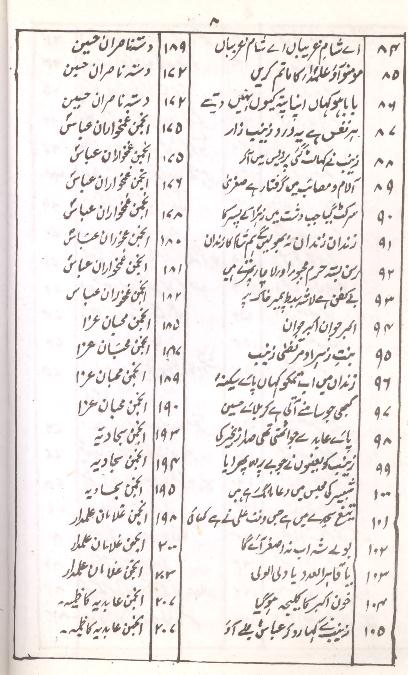 ۸
۸۴ اے شامِ غریباں اے شامِ غریباں ۱۸۹ دستہ ناصران حسین
۸۵ مومنو آؤ علمدار کا ماتم کریں ۱۷۲ دستہ ناصران حسین
۸۶ بابا ہو کہاں اپنا پتہ کیوں نہیں دیتے ۱۷۲ دستہ ناصران حسین
۸۷ ہر نفس ہے یہ درد زینب زار ۱۷۵ انجمن غمخواران عباسؑ
۸۸ زینبؑ نے کہا لٹ گئی پردیس میں آکر ۱۷۵ انجمن غمخواران عباسؑ
۸۹ آلام و مصائب میں گرفتار ہے صغریٰ ۱۷۶ انجمن غمخواران عباسؑ
۹۰ سر کٹ گیا جب دشت میں زہراؑ کے پسر کا ۱۷۸ انجمن غمخواران عباسؑ
۹۱ زنداں زنداں نہ بھولیں گے ہم شام کا زنداں ۱۸۰ انجمن غمخواران عباسؑ
۹۲ رسن بستہ حرم مجبور و لاچار ہیں ۱۸۱ انجمن غمخواران عباسؑ
۹۳ بے کفن ہے لاشہ سبط پیمبر خاک پر ۱۸۲ انجمن غمخواران عباسؑ
۹۴ اکبر جواں اکبر جواں ۱۸۵ انجمن محبان عزا
۹۵ بنت زہرا دختر مرتضیٰ زینب ۱۸۷ انجمن محبان عزا
۹۶ زنداں میں اے تمکو کہاں پائے سکینہؑ ۱۸۹ انجمن محبان عزا
۹۷ کبھی جو سامنے آتی ہے کربلائے حسین ۱۹۰ انجمن محبان عزا
۹۸ پائے عابد سے جو اٹھتی تھی صدا زنجیر کی ۱۹۳ انجمن سجادیہ
۹۹ زینبؑ کو لعینوں نے جو بے پردہ پھرایا ۱۹۴ انجمن سجادیہ
۱۰۰ شبیرؑ کی مجلس میں دعا مانگ رہے ہیں ۱۹۵ انجمن سجادیہ
۱۰۱ تیغ سجدے میں جس وقت علی نے کھائی ۱۹۸ انجمن غلامان علمدار
۱۰۲ بولے شہ اب نہ اصغر آئے گا ۲۰۰ انجمن غلامان علمدار
۱۰۳ یا قاہر العدو یا والی الولی ۲۰۳ انجمن غلامان علمدار
۱۰۴ خون اکبر کا کلیجہ ہو گیا ۲۰۷ انجمن عابدیہ کاظمیہ
۱۰۵ زینبؑ نے کہا رو کر عباسؑ چلے آؤ ۲۰۷ انجمن عابدیہ کاظمیہ